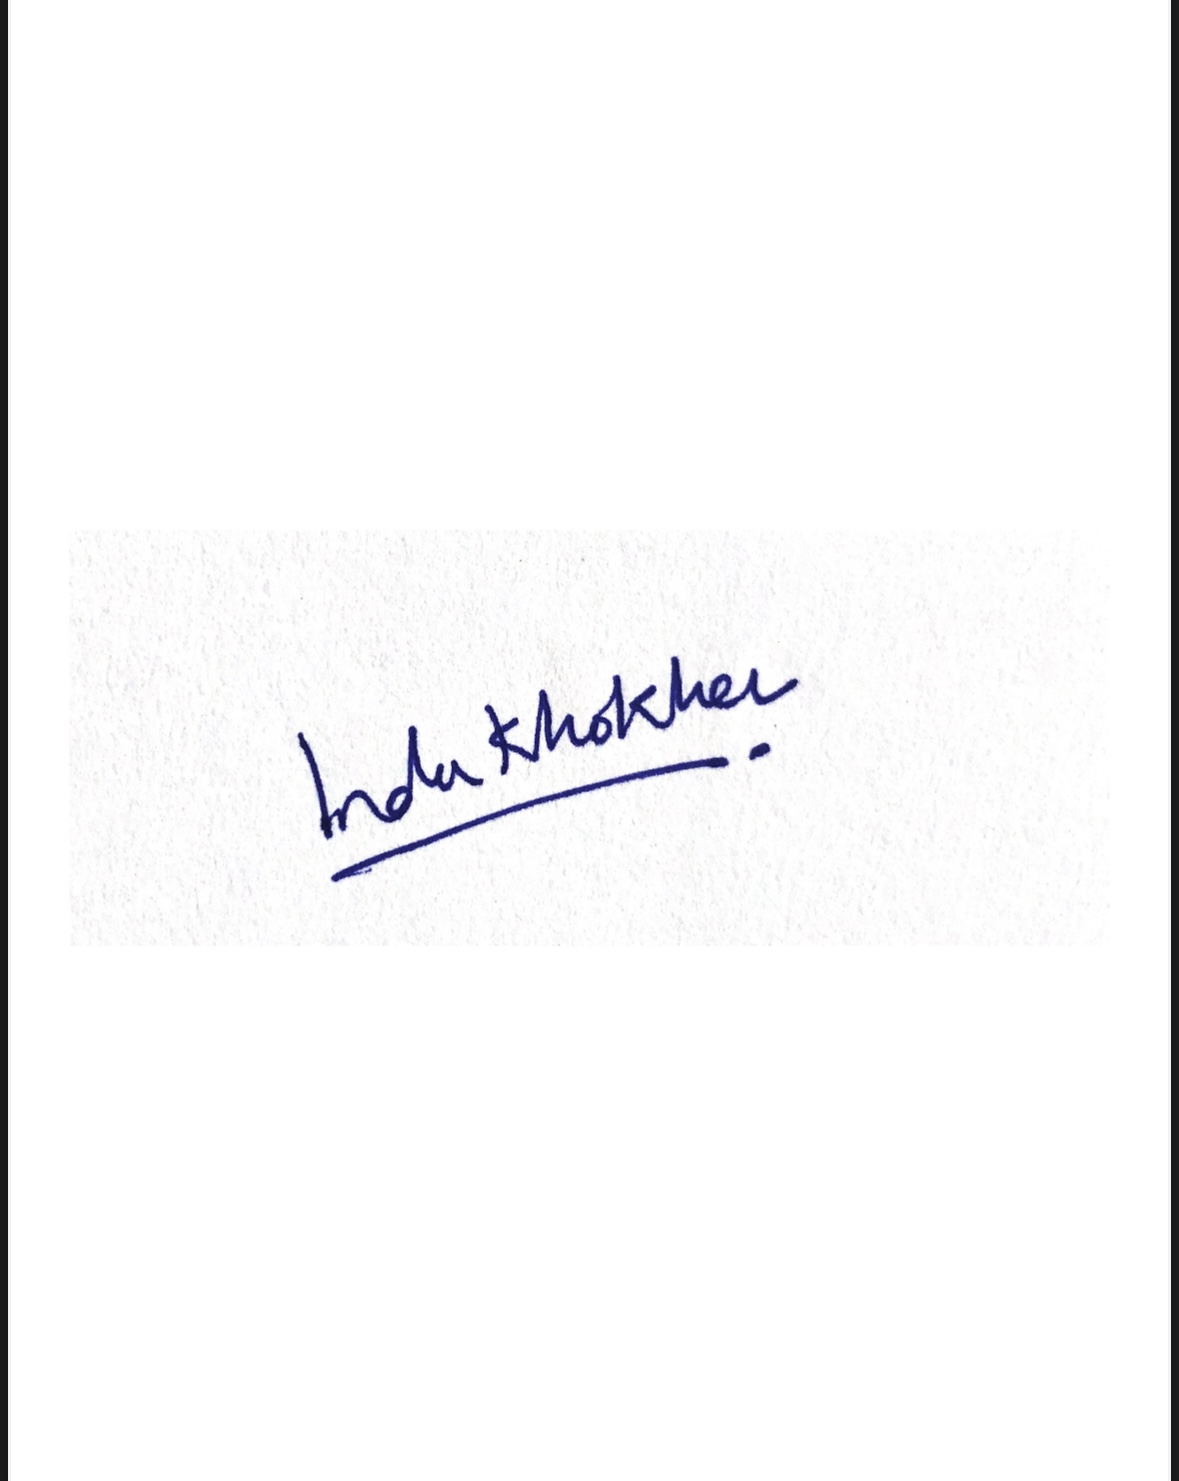 Inda Khokher